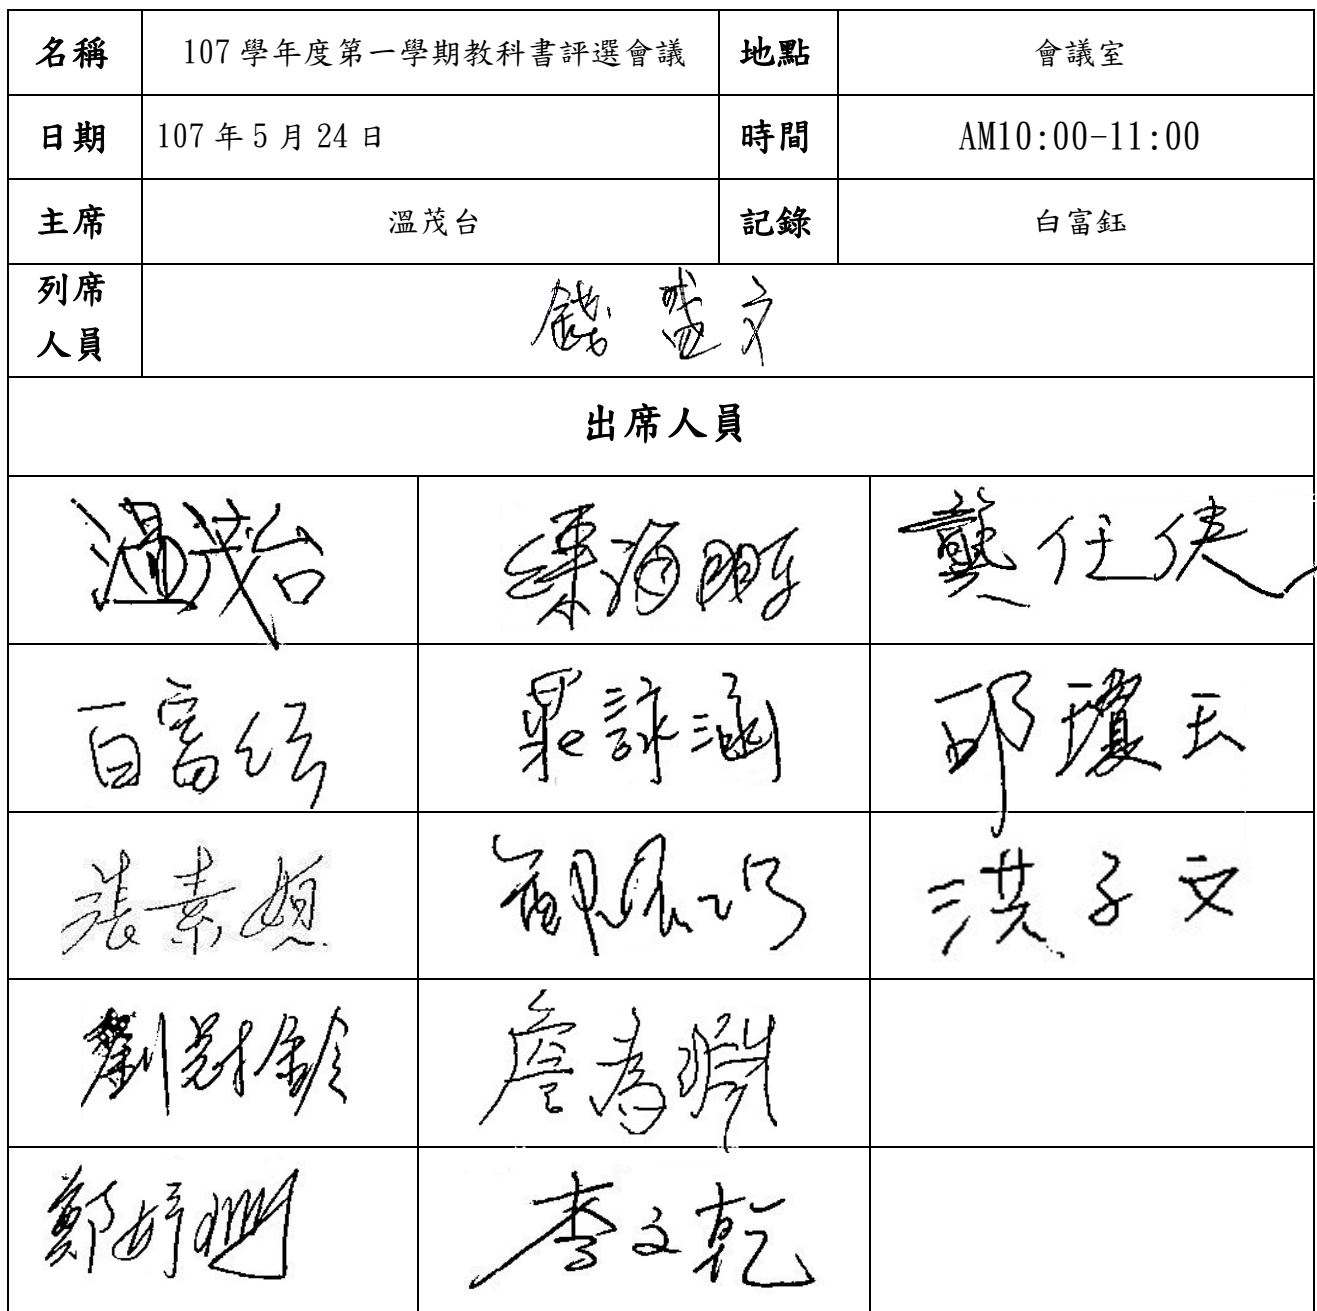 名稱 107 學年度第一學期教科書評選會議 地點 會議室
日期 107 年 5 月 24 日 時間 AM10:00-11:00
主席 溫茂台 記錄 白富鈺
列席
人員
錢盛文
出席人員
溫茂台 龔任俠
白富鈺 詠涵 邱瓊玉
張素媳 洪子文
劉 詹為
鄭妤 李文乾